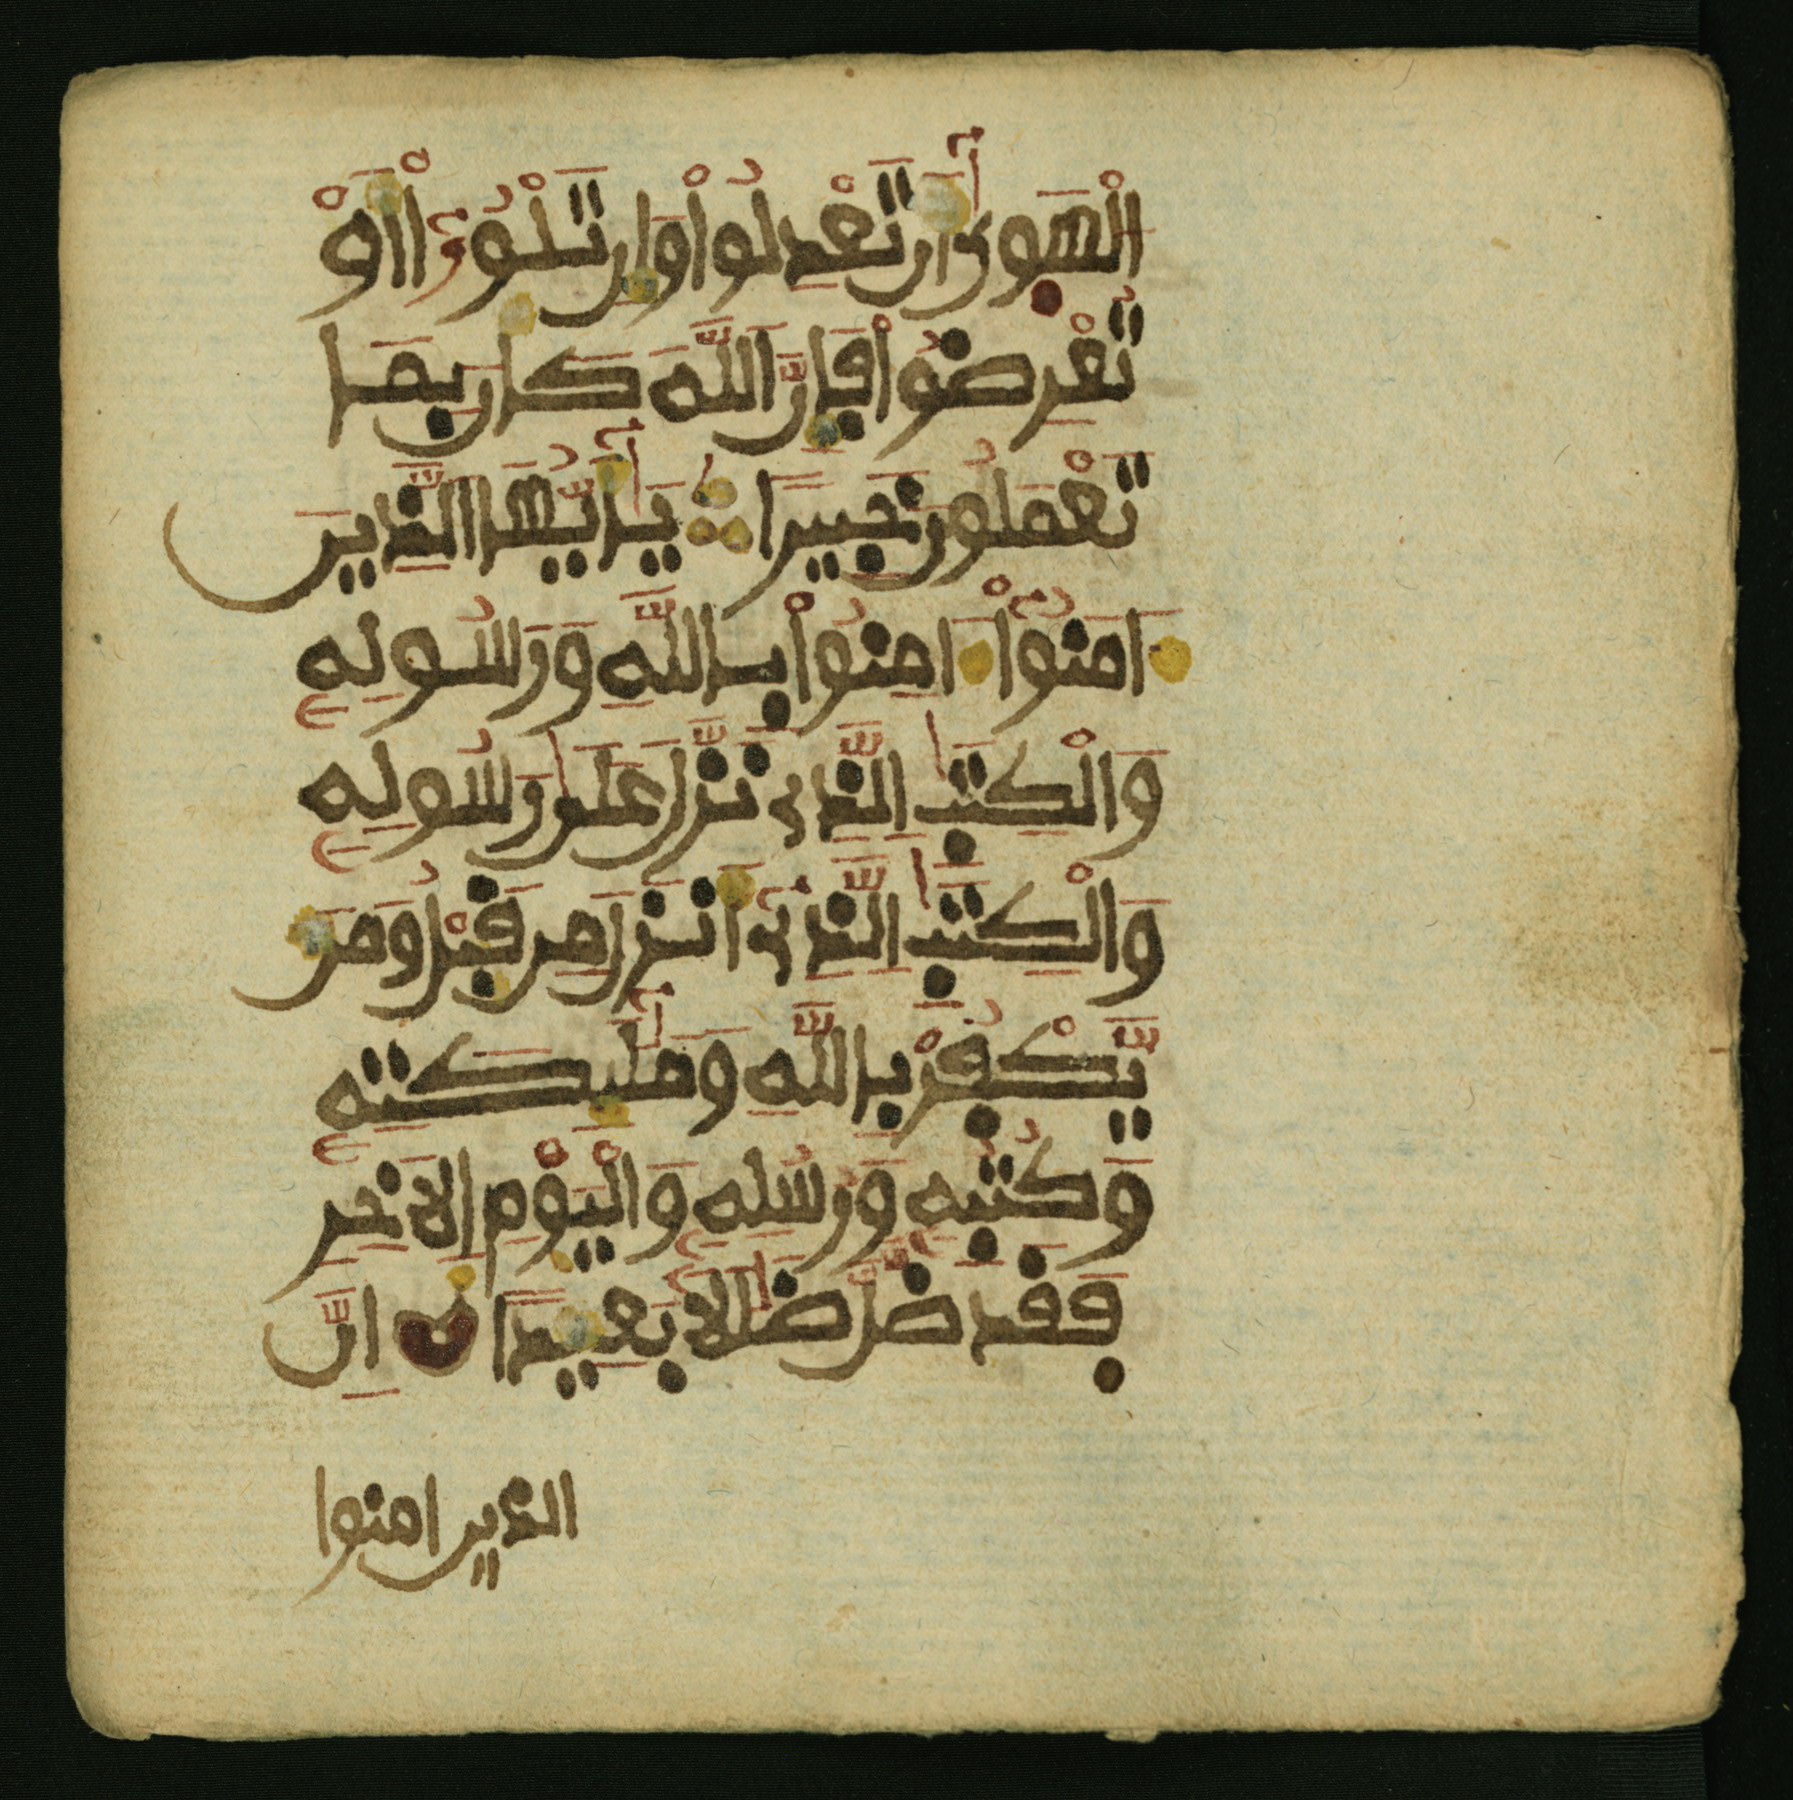 الْهَوىٰٓ أَن تَعْدِلُواْ وَإِن تَلْوُۥٓاْ أَوْ
تُعْرِضُواْ فَإِنَّ اللَّهَ كَانَ بِمَا
تَعْمَلُونَ خَبِيراً يَٰٓأَيُّهَا الَّذِينَ
ءَامَنُوٓاْ ءَامِنُواْ بِاللَّهِ وَرَسُولِهِۦ
وَالْكِتَٰبِ الَّذِى نَزَّلَ عَلَىٰ رَسُولِهِۦ
وَالْكِتَٰبِ الَّذِىٓ أَنزَلَ مِن قَبْلُ وَمَن
يَّكْفُرْ بِاللَّهِ وَمَلَٰٓئِكَتِهِۦ
وَكُتُبِهِۦ وَرُسُلِهِۦ وَالْيَوْمِ الَاخِرِ
فَقَد ضَّلَّ ضَلَٰلاَۢ بَعِيداً إِنَّ
الذين امنوا